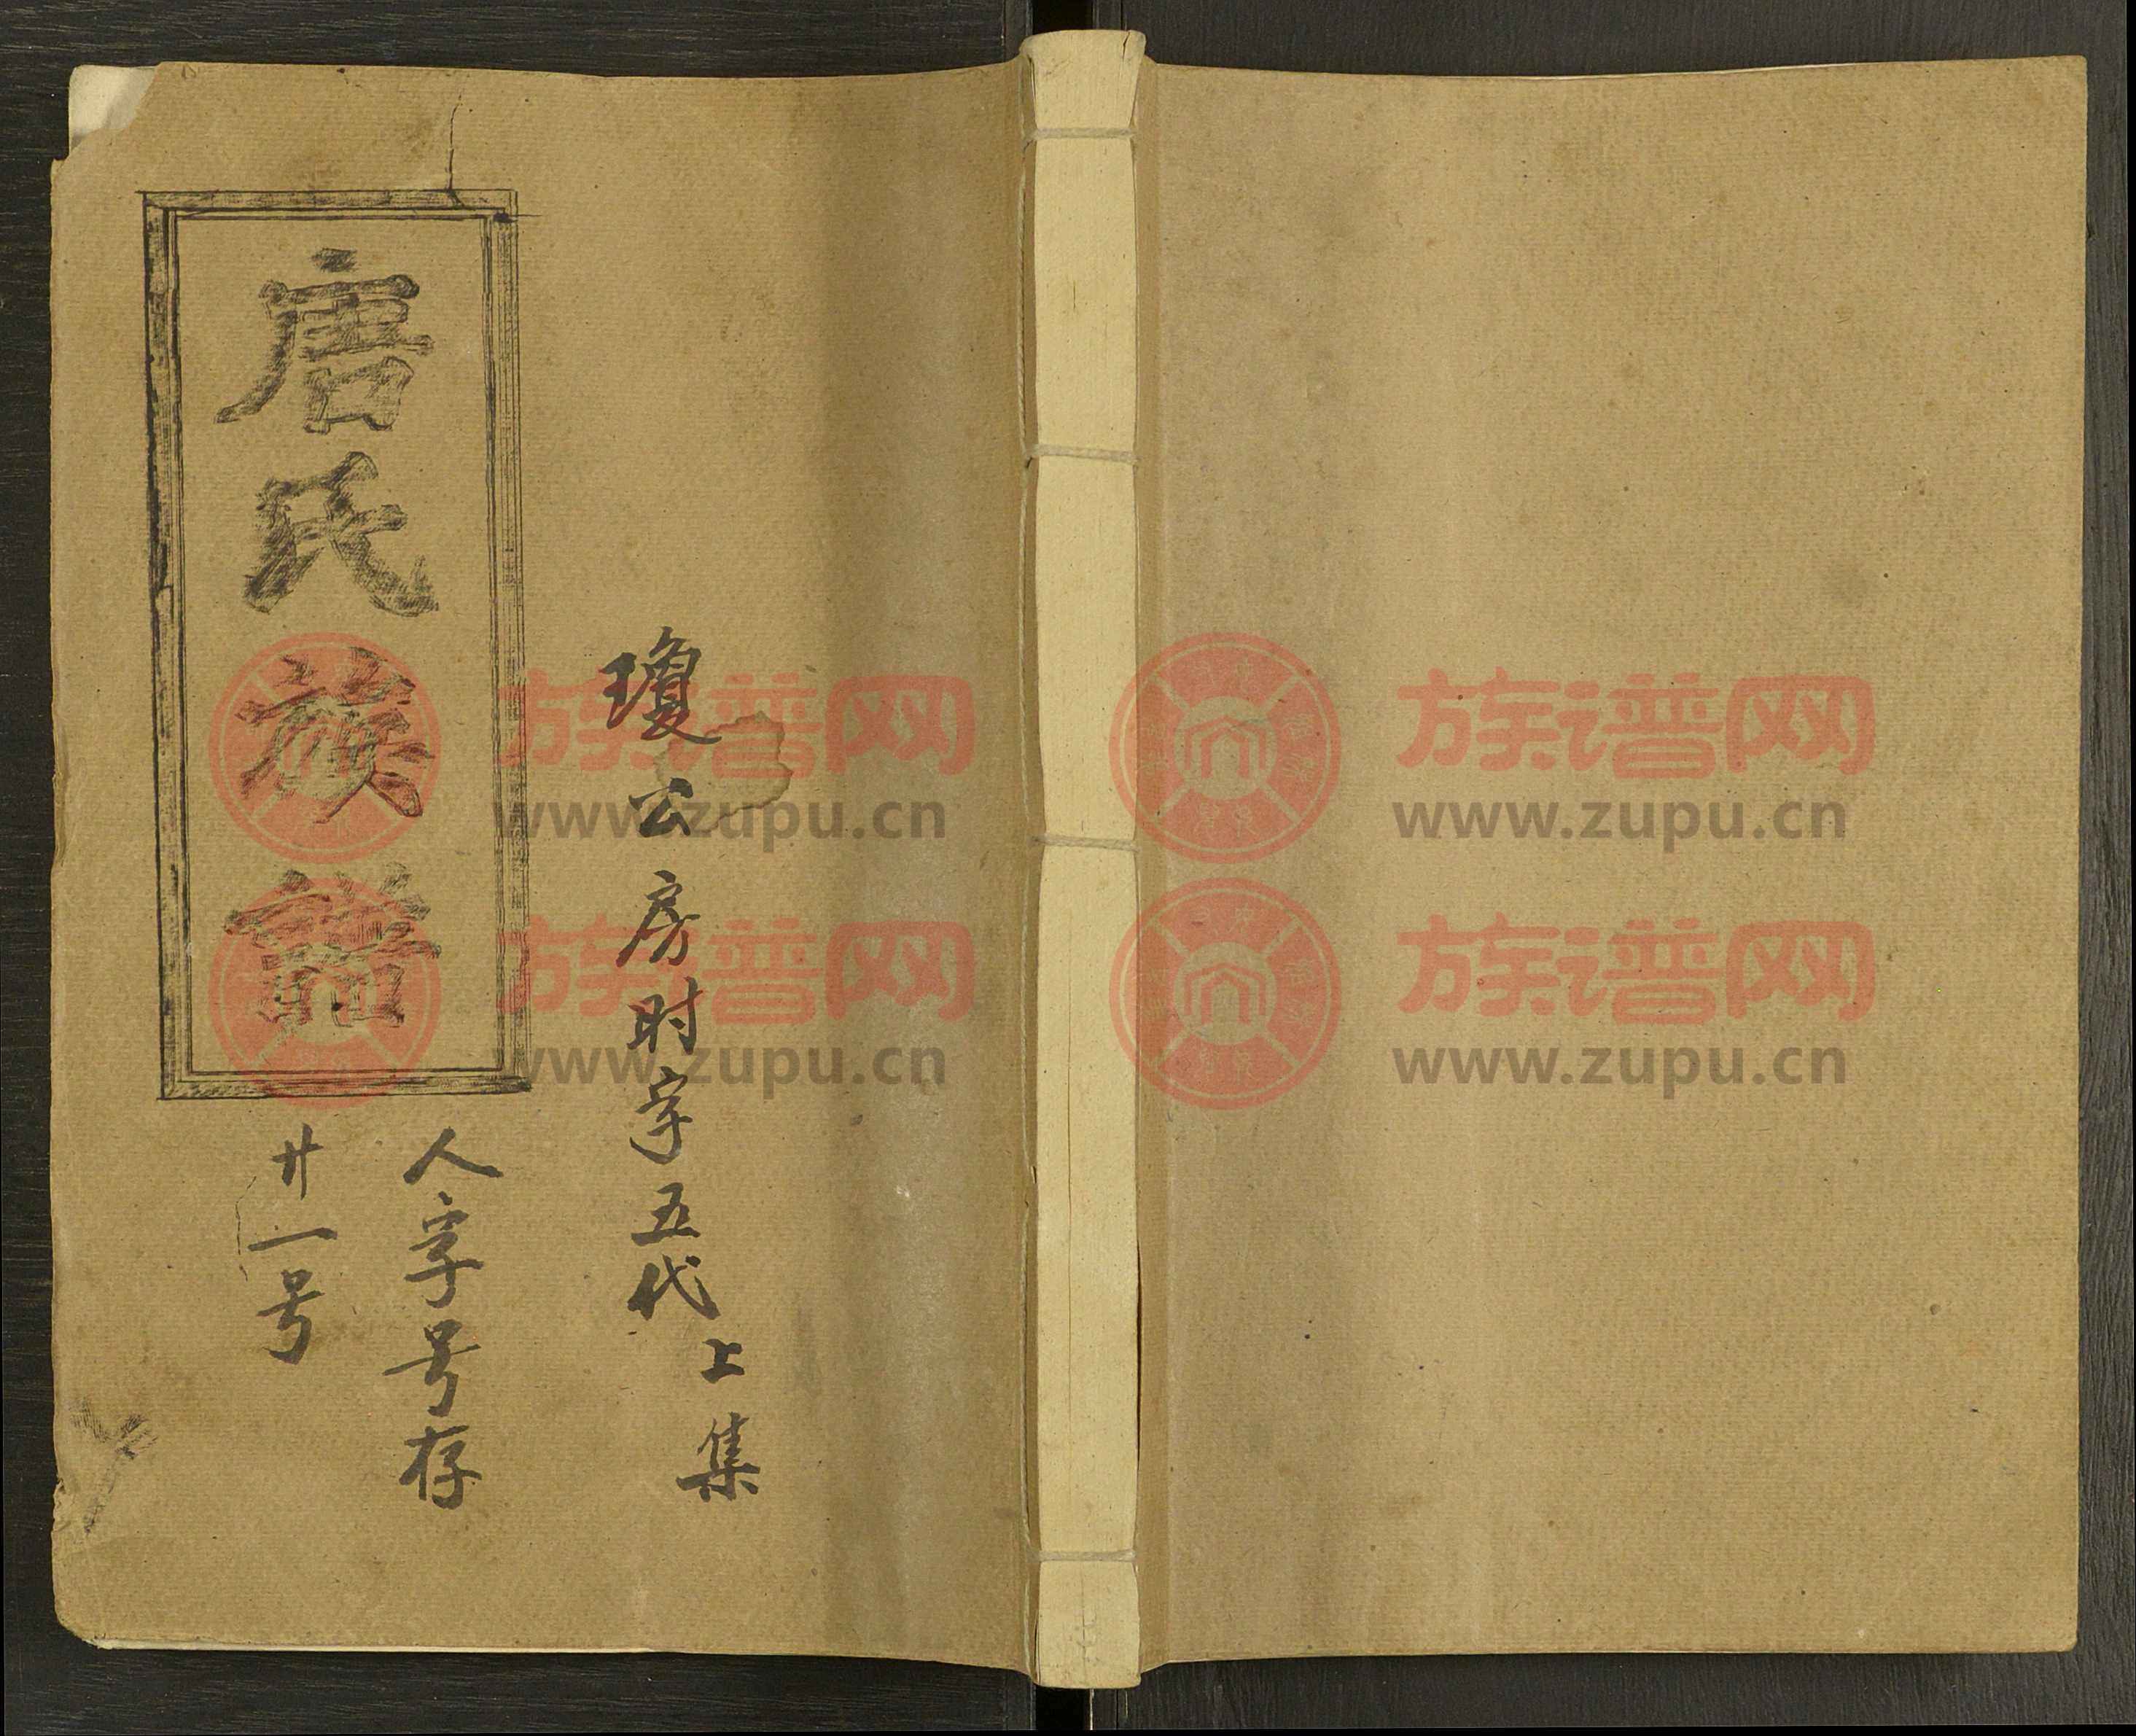 瓊公房时字五代
上集
唐氏族譜
人字号存
廿一号
族谱网
www.zupu.cn
族谱网
www.zupu.cn
族谱网
www.zupu.cn
族谱网
www.zupu.cn